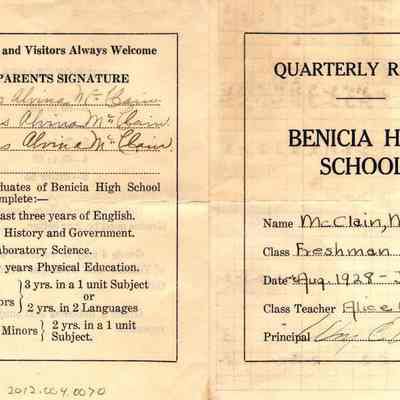 and Visitors Always Welcome
PARENTS SIGNATURE
Alvina McClain
Alvina McClain
Alvina McClain
duates of Benicia High School
mplete:—
ast three years of English.
History and Government.
aboratory Science.
years Physical Education.
ors } { 3 yrs. in a 1 unit Subject
or
2 yrs. in 2 Languages
Minors } { 2 yrs. in a 1 unit
Subject.
2012.004.0070
QUARTERLY R
BENICIA HI
SCHOOL
Name McClain, M
Class Freshman
Date Aug. 1928-J
Class Teacher Alice
Principal